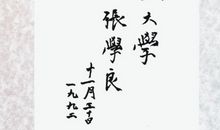 大學
張學良
十一月
一九九二